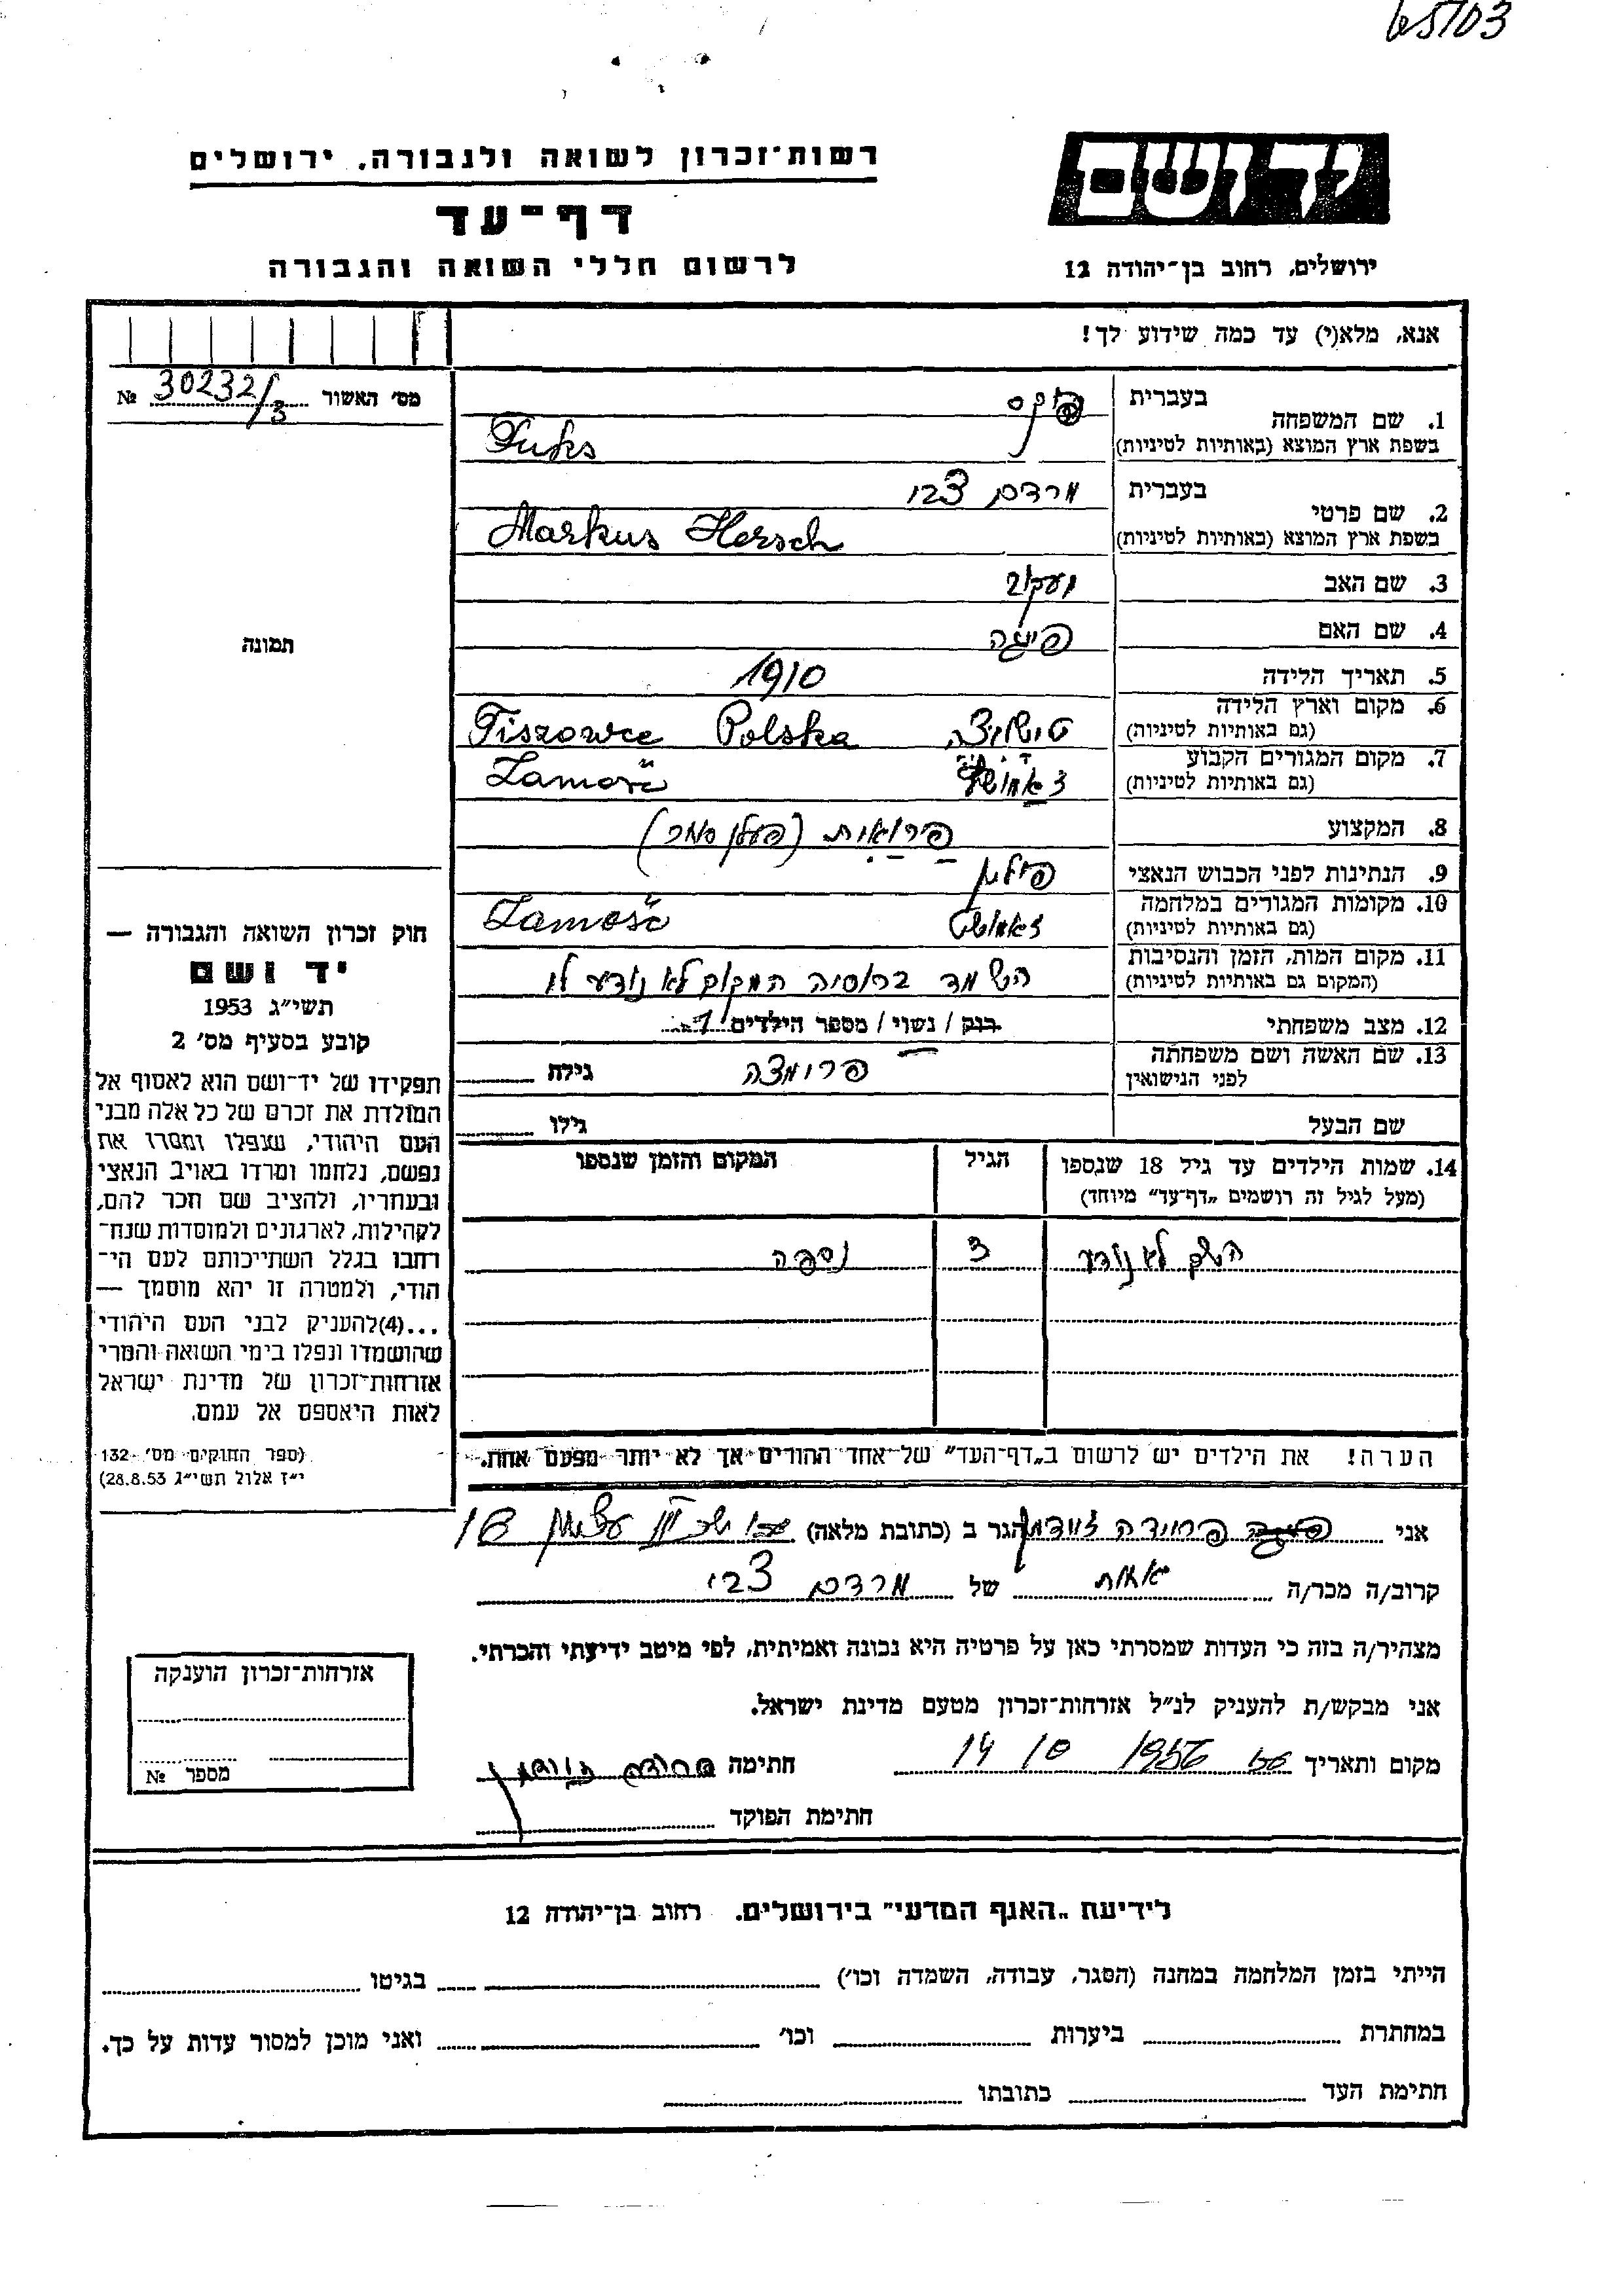 65703
יד ושם
ירושלים, רחוב בן־יהודה 12
רשות־זכרון לשואה ולגבורה, ירושלים
דף־עד
לרשום חללי השואה והגבורה
אנא, מלא(י) עד כמה שידוע לך!
מס׳ האשור 30232/3 №
תמונה
חוק זכרון השואה והגבורה —
יד ושם
תשי״ג 1953
קובע בסעיף מס׳ 2
תפקידו של יד־ושם הוא לאסוף אל
המולדת את זכרם של כל אלה מבני
העם היהודי, שנפלו ומסרו את
נפשם, נלחמו ומרדו באויב הנאצי
ובעוזריו, ולהציב שם וזכר להם,
לקהילות, לארגונים ולמוסדות שנח־
רבו בגלל השתייכותם לעם הי־
הודי, ולמטרה זו יהא מוסמך —
...(4)להעניק לבני העם היהודי
שהושמדו ונפלו בימי השואה והמרי
אזרחות־זכרון של מדינת ישראל
לאות היאספם אל עמם.
(ספר החוקים מס׳ 132
י״ז אלול תשי״ג 28.8.53)
1. שם המשפחה בעברית פוקס
בשפת ארץ המוצא (באותיות לטיניות) Fuks
2. שם פרטי בעברית מרדכי צבי
בשפת ארץ המוצא (באותיות לטיניות) Markus Hersch
3. שם האב יעקוב
4. שם האם פייגה
5. תאריך הלידה 1910
6. מקום וארץ הלידה טישוביצה Tiszowce Polska
(גם באותיות לטיניות)
7. מקום המגורים הקבוע Zamość
(גם באותיות לטיניות)
8. המקצוע
9. הנתינות לפני הכבוש הנאצי פולין
10. מקומות המגורים במלחמה זאמושץ Zamość
(גם באותיות לטיניות)
11. מקום המות, הזמן והנסיבות השמד ברוסיה המקום לא נודע לי
(המקום גם באותיות לטיניות)
12. מצב משפחתי רווק / נשוי / מספר הילדים 1
13. שם האשה ושם משפחתה פרומצה גילה
לפני הנישואין
שם הבעל גילו
14. שמות הילדים עד גיל 18 שנספו הגיל המקום והזמן שנספו
(מעל לגיל זה רושמים „דף־עד״ מיוחד)
השם לא נודע 3 נספה
הערה! את הילדים יש לרשום ב„דף־העד״ של אחד ההורים אך לא יותר מפעם אחת.
אני פרידה זיידמן הגר ב (כתובת מלאה) 18
קרוב/ה מכר/ה אחות של מרדכי צבי
מצהיר/ה בזה כי העדות שמסרתי כאן על פרטיה היא נכונה ואמיתית, לפי מיטב ידיעתי והכרתי.
אני מבקש/ת להעניק לנ״ל אזרחות־זכרון מטעם מדינת ישראל.
מקום ותאריך 1956 10 14 חתימה
חתימת הפוקד
אזרחות־זכרון הוענקה
מספר №
לידיעת „האגף המדעי״ בירושלים, רחוב בן־יהודה 12
הייתי בזמן המלחמה במחנה (הסגר, עבודה, השמדה וכו׳) בגיטו
במחתרת ביערות וכו׳ ואני מוכן למסור עדות על כך.
חתימת העד כתובתו